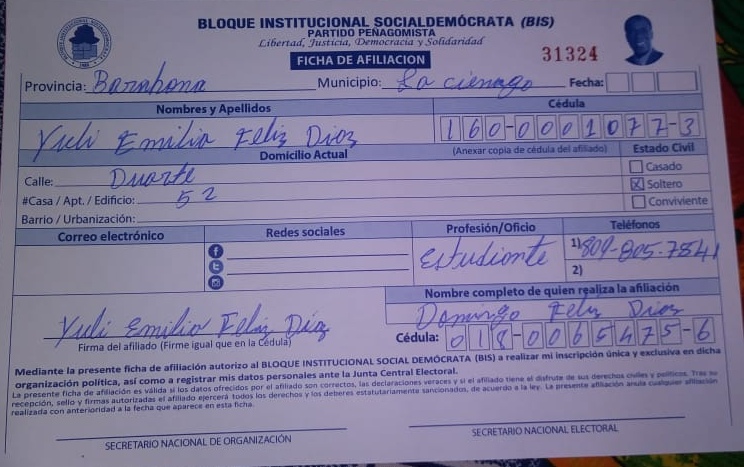 BLOQUE INSTITUCIONAL SOCIALDEMÓCRATA (BIS)
PARTIDO PEÑAGOMISTA
Libertad, Justicia, Democracia y Solidaridad
FICHA DE AFILIACION
31324
Provincia: Barahona Municipio: La cienago Fecha:
Nombres y Apellidos Cédula
Yuli Emilio Feliz Diaz 160-0001077-3
Domicilio Actual (Anexar copia de cédula del afiliado) Estado Civil
Calle: Duarte Casado
#Casa / Apt. / Edificio: 52 Soltero
Barrio / Urbanización: Conviviente
Correo electrónico Redes sociales Profesión/Oficio Teléfonos
Estudiante 1) 809-805-7841
2)
Nombre completo de quien realiza la afiliación
Domingo Feliz Diaz
Yuli Emilio Feliz Diaz
Firma del afiliado (Firme igual que en la Cédula) Cédula: 018-0065475-6
Mediante la presente ficha de afiliación autorizo al BLOQUE INSTITUCIONAL SOCIAL DEMÓCRATA (BIS) a realizar mi inscripción única y exclusiva en dicha
organización política, así como a registrar mis datos personales ante la Junta Central Electoral.
La presente ficha de afiliación es válida si los datos ofrecidos por el afiliado son correctos, las declaraciones veraces y si el afiliado tiene el disfrute de sus derechos civiles y políticos. Tras su
recepción, sello y firmas autorizadas el afiliado ejercerá todos los derechos y los deberes estatutariamente sancionados, de acuerdo a la ley. La presente afiliación anula cualquier afiliación
realizada con anterioridad a la fecha que aparece en esta ficha.
SECRETARIO NACIONAL DE ORGANIZACIÓN SECRETARIO NACIONAL ELECTORAL